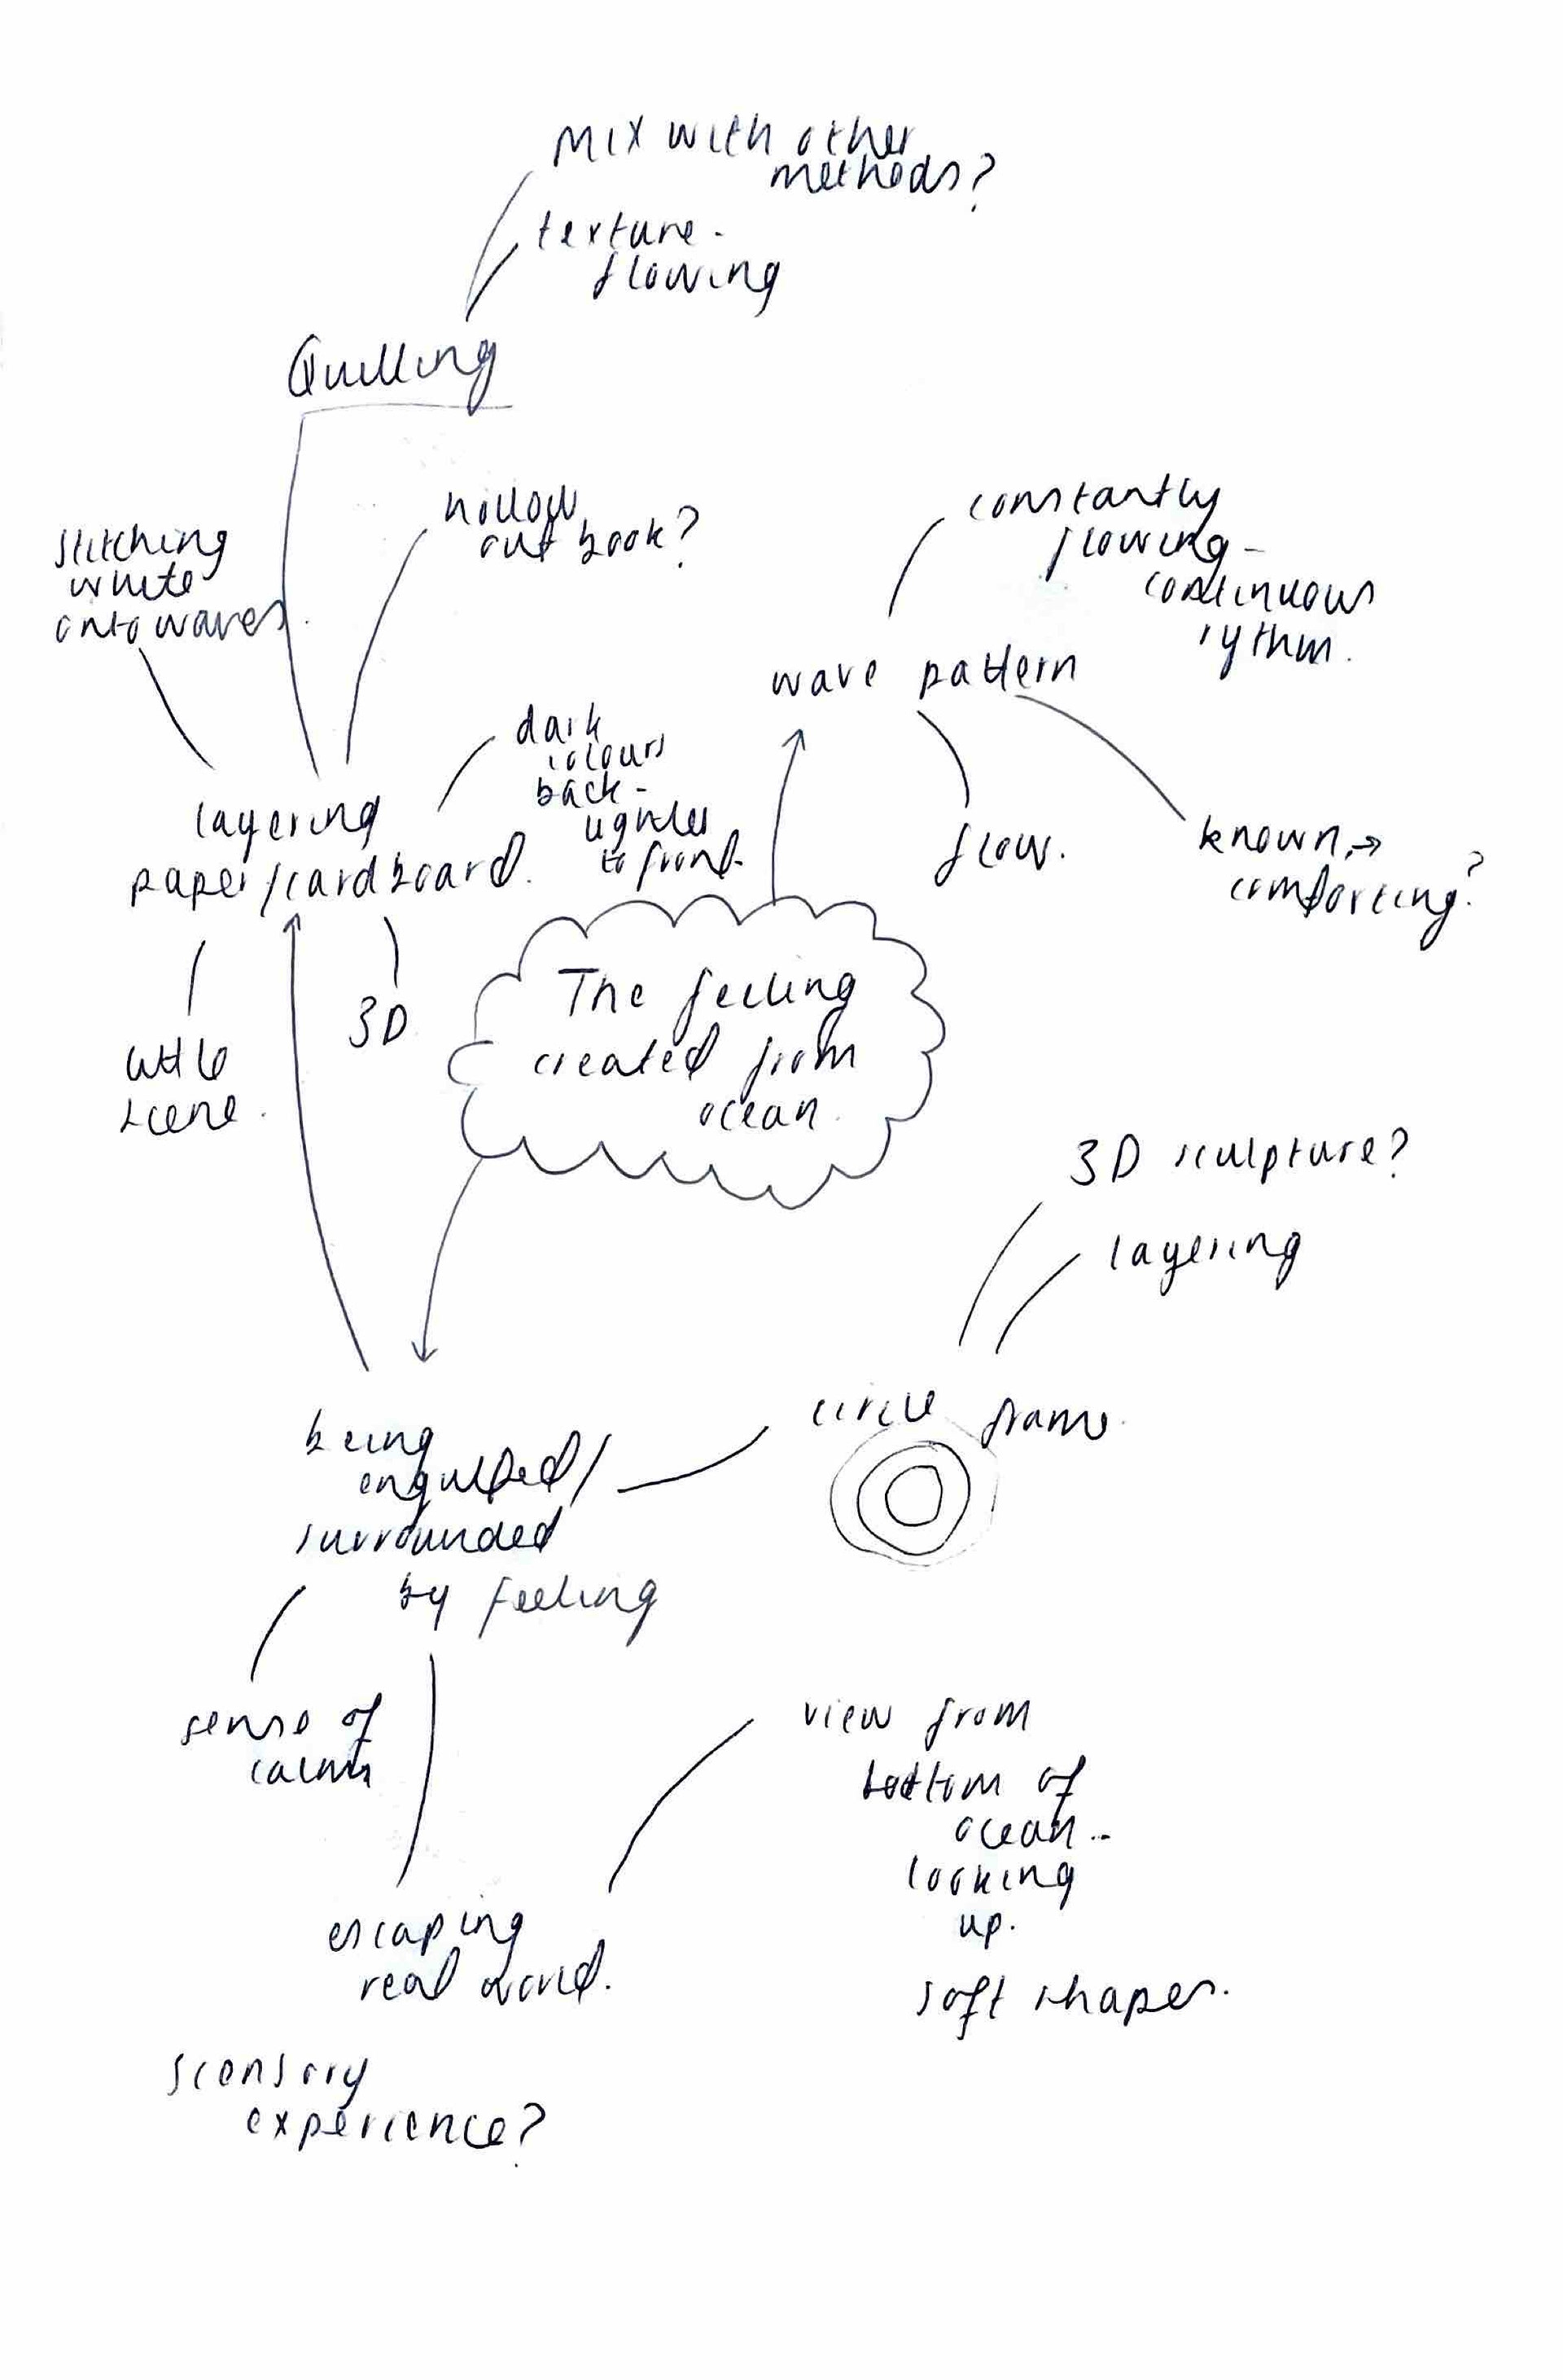 Mix with other
methods?
texture -
flowing
Quilling
hollow
out book?
stitching
white
onto waves.
constantly
flowing -
continuous
rythm.
wave pattern
dark
colours
back -
lighter
to front.
layering
paper/cardboard.
flow.
known →
comforting?
3D
little
scene.
The feeling
created from
ocean.
3D sculpture?
layering
circle frame.
being
engulfed/
surrounded
by feeling
sense of
calm
view from
bottom of
ocean -
looking
up.
soft shapes.
escaping
real world.
scensory
experience?